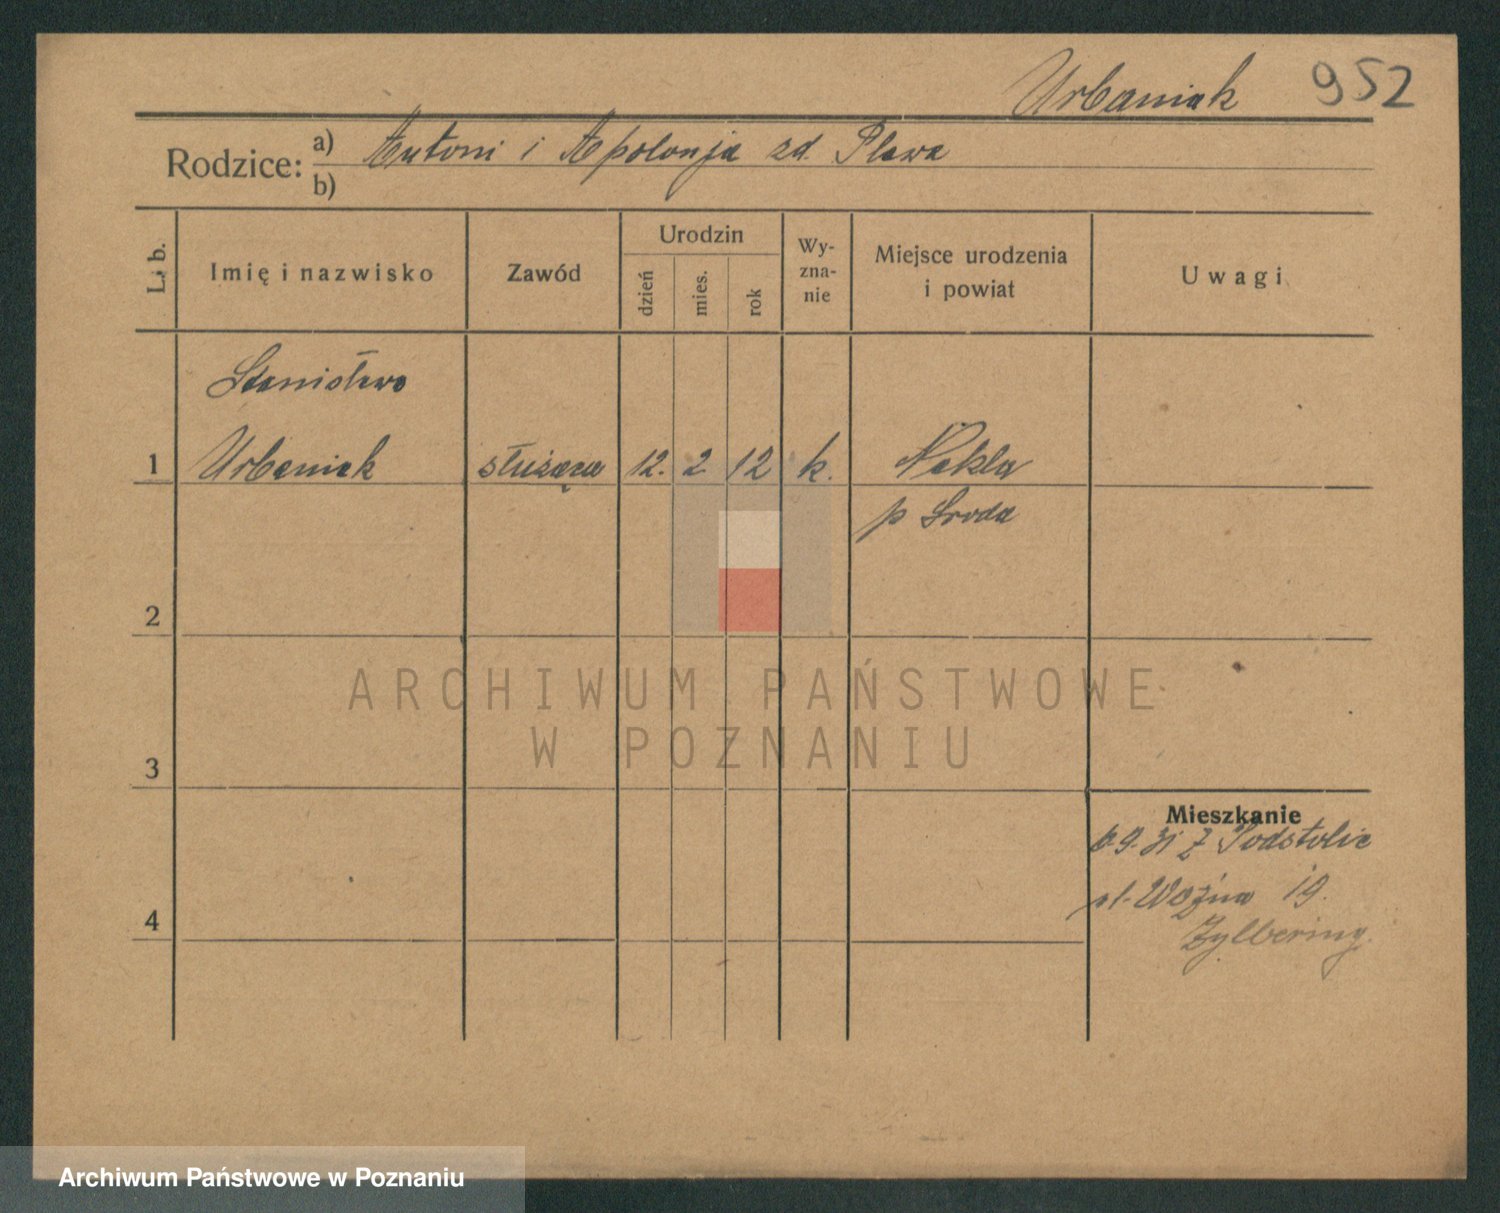 Urbaniak 952
Rodzice: a) Antoni i Apolonja zd. Plewa
b)
L. b. Imię i nazwisko Zawód Urodzin dzień mies. rok Wyznanie Miejsce urodzenia i powiat Uwagi
Stanisława
1 Urbaniak służąca 12. 2 12 k. Nekla
p Środa
2
ARCHIWUM PAŃSTWOWE
W POZNANIU
3
Mieszkanie
6.9.31 z Podstolic
ul. Woźna 19.
4
Zylbering.
Archiwum Państwowe w Poznaniu